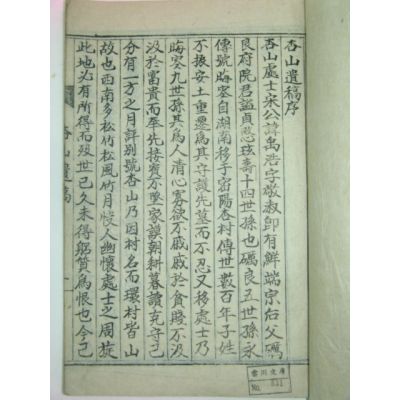 杏山遺稿序
杏山處士宋公諱禹浩字敬叔卽有鮮端宗后父礪
良府院君諡貞愍玹壽十四世孫也礪良五世孫永
傳號晦窒自湖南移于密陽杏村傳世數百年子姓
不振安土重遷爲其守護先墓而不忍又移處士乃
晦窒九世孫其爲人淸心寡欲不戚戚於貧賤不汲
汲於富貴而奉先接賓不墜家謨朝耕暮讀充守己
分有一方之月評別號杏山乃因村名而環村皆山
故也西南多松竹松風竹月愜人幽懷處士之周旋
此地必有所得而歿世已久未得躬質爲恨也今己
杏山遺稿
一
雲川文庫
No. 831